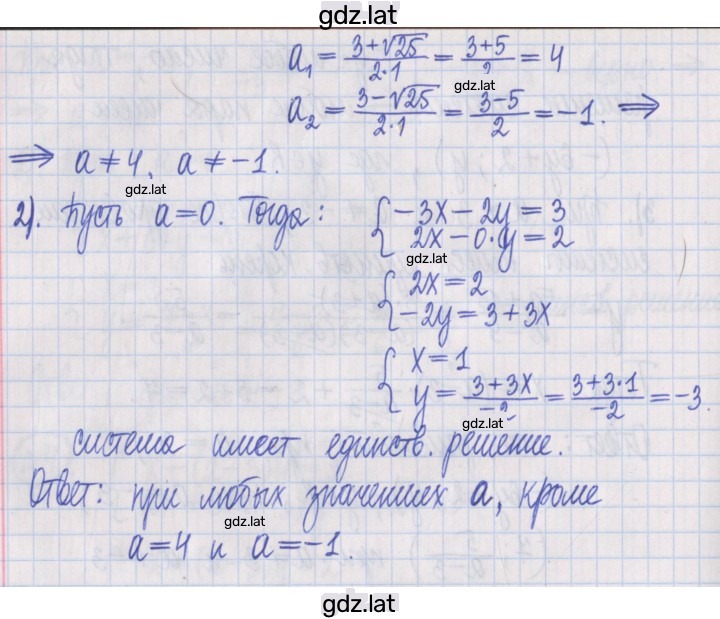 gdz.lat
a₁ = (3+√25)/(2·1) = (3+5)/2 = 4
gdz.lat
a₂ = (3−√25)/(2·1) = (3−5)/2 = −1. ⟹
⟹ a ≠ 4, a ≠ −1.
gdz.lat
2). Пусть a = 0. Тогда: { −3x − 2y = 3
2x − 0·y = 2
gdz.lat
{ 2x = 2
−2y = 3 + 3x
{ x = 1
y = (3+3x)/(−2) = (3+3·1)/(−2) = −3.
gdz.lat
система имеет единств. решение.
Ответ: при любых значениях a, кроме
gdz.lat
a = 4 и a = −1.
gdz.lat